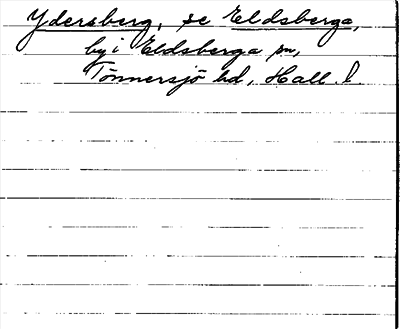 Ydersberg, se Eldsberga,
by i Eldsberga sn,
Tönnersjö hd, Hall. l.